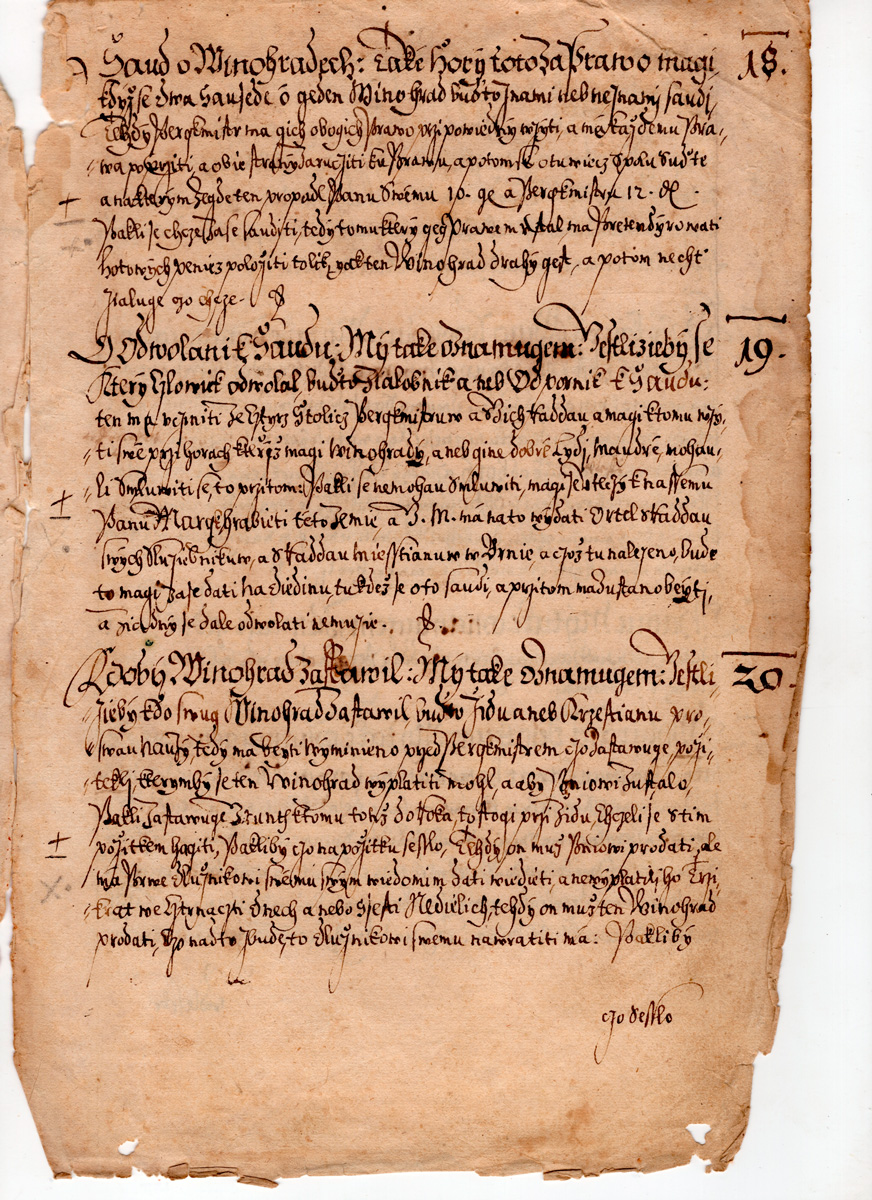 Saud o Winohradech: Take Hory toto za Prawo magi 18.
kdyz se dwa saudie o geden Winohrad budto znami neb neznamy saudj
Tehdy Pergkmistr ma gich obogich Prawo przipowiedny wzyti, a
a na kterym zegde ten propadl Panu Swemu 10. ge a Pergkmistru 12. ge.
Pakli se chcze zase sauditi, tedy tomu ktery geg Prawem ma Pretendyrowati
hotowych peniez poloziti tolik, yak ten Winohrad drahy gest, a potom necht
zialuge czo chcze.
O Odwolani k Saudu: My take oznamugem: Gestlizieby se 19.
Ktery Czlowiek odwolal budto zialobnik aneb Odpornik k Saudu:
ten ma vcziniti ze cztyrz Stolicz Pergkmistruw a Nich kazdau a magi k tomu wzy-
ti swe przi horach kterziz magi Winohrady, aneb gine dobre Lydj, maudre, mohau-
li Smluwiti se, to przitom: Pakli se nemohau Smluwiti, magi se teczi k nassemu
Panu Margkhrabieti teto Zemie, a J. M. ma na to wydati Ortel s Raddau
swych Sluziebnikuw, a s Raddau Miesstianuw w Brnie, a czoz tu nalezeno bude
to magi zase dati na diedinu, tu kdez se o to saudi, a przitom ma zustano beyti,
a ziadny se dale odwolati nemuzie.
Kdoby Winohrad zastawil: My take oznamugem: Gestli- 20.
zieby kdo swug Winohrad zastawil, budto Zidu aneb Krzestianu pro-
swau nauzy, tedy ma beyti wyminieno przed Pergkmistrem czo zastawuge, pozi-
tekli kterymby se ten Winohrad wyplatiti mohl, a aby Pniowi zustalo,
Pakli zastawuge Grunth k tomu totiz do Roka, to stogi przi Zidu, Chczeli se s tim
pozitkem hagiti, Pakliby czo na pozitku sesslo, Tehdy on muz Pniowi prodati, ale
ma Prwe dluznikowi swemu swym wiedomim dati wiedieti, a newyplatilliho Trzi-
krat we cztrnaczti dnech anebo Ssesti Nedielich, tehdy on muz ten Winohrad
prodati, czo nadto bude, to dluznikowi swemu nawratiti ma: Pakliby
czo sesslo